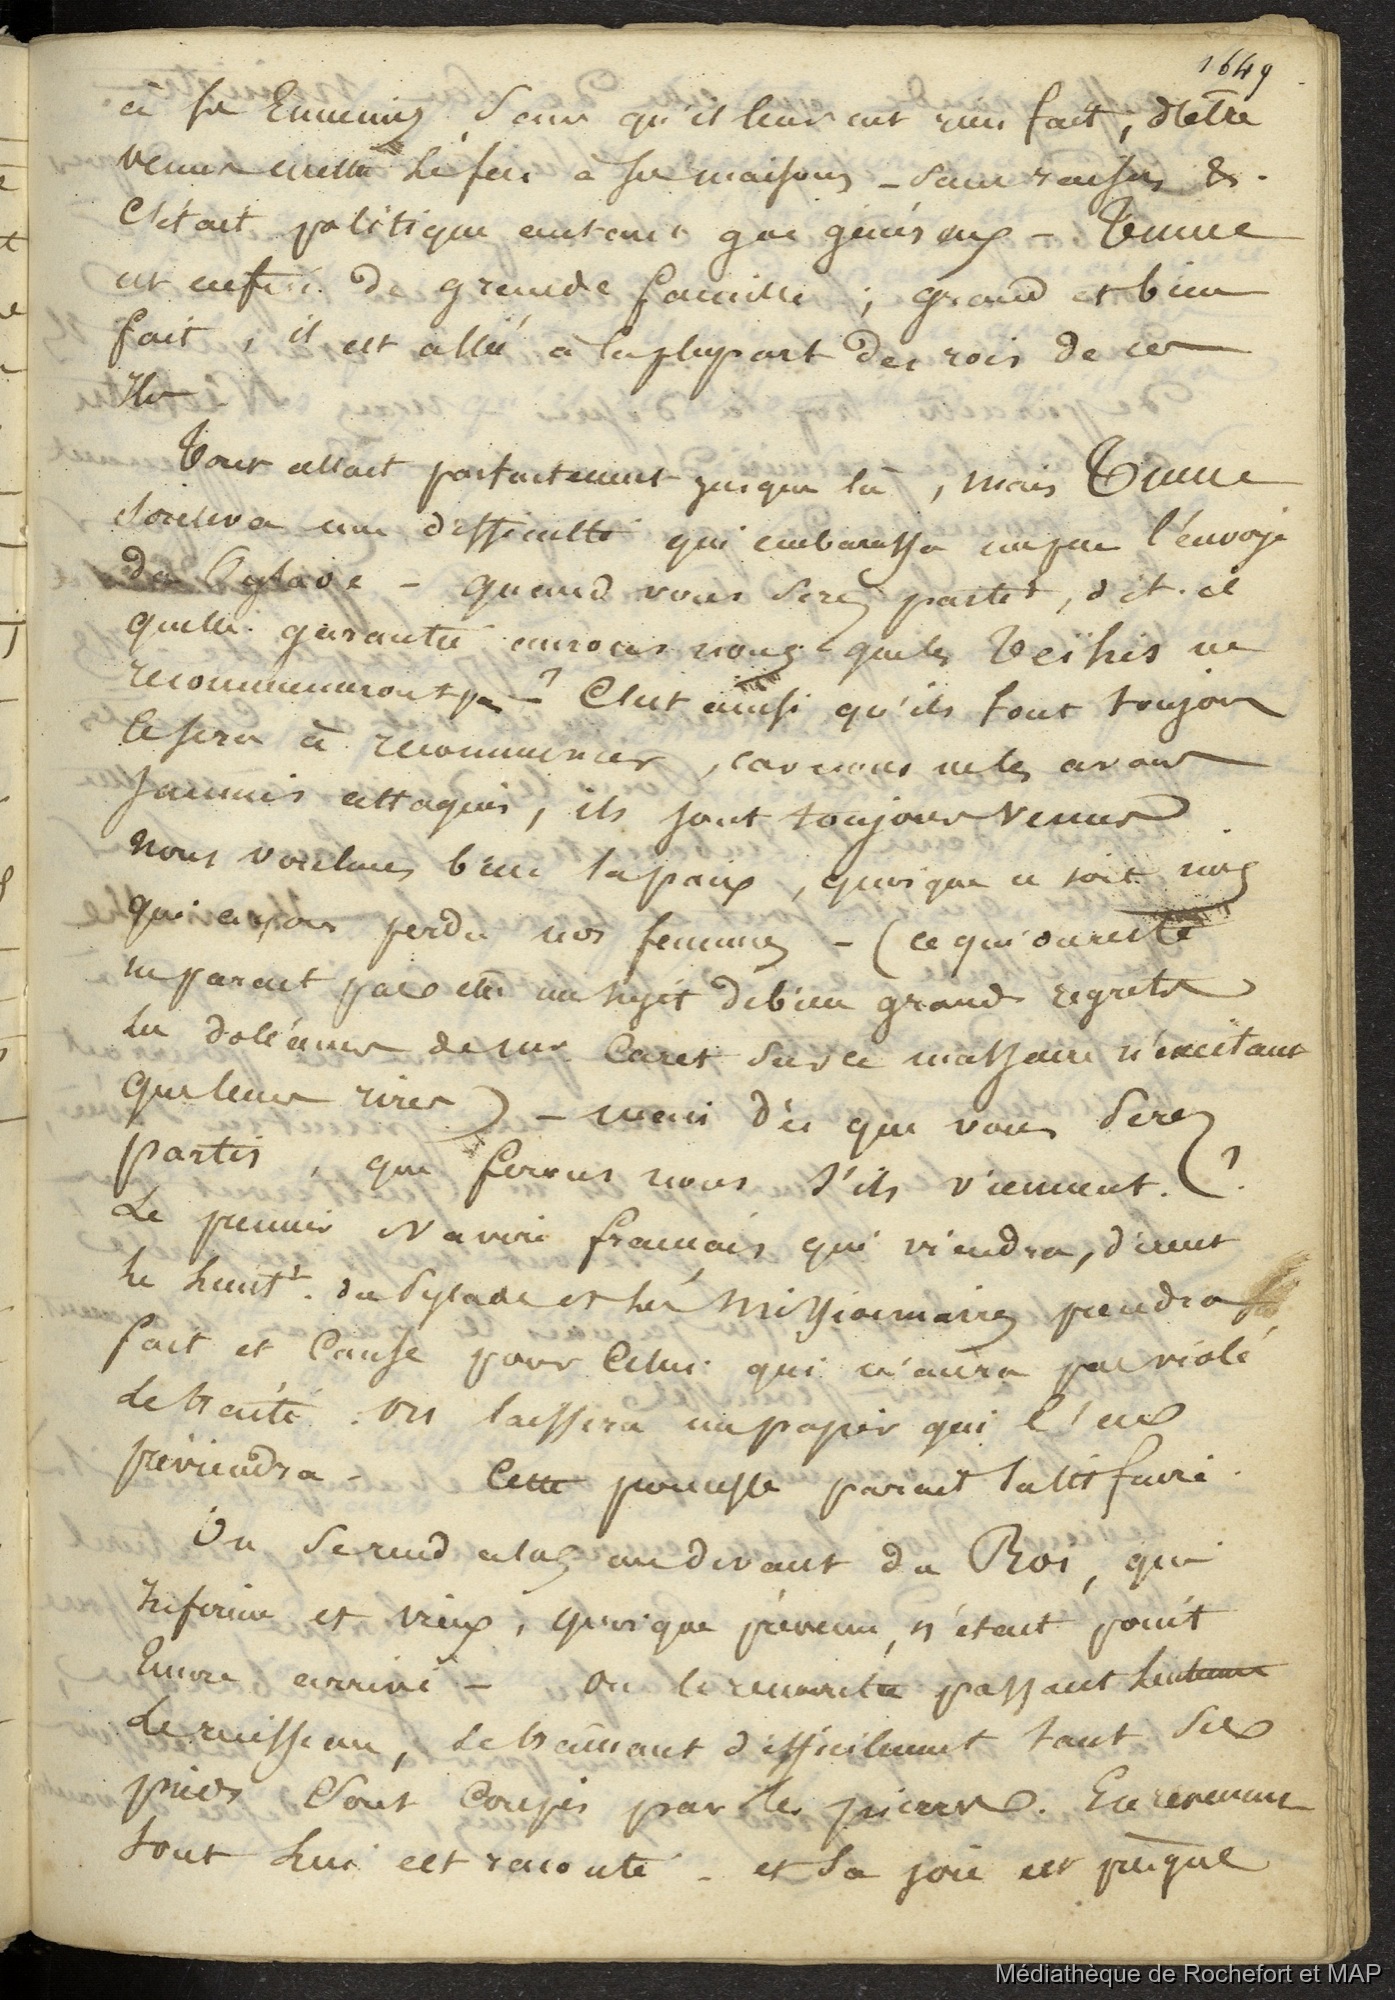 1649
à ses Ennemis, sans qu'ils leur eut rien fait, d'etre
venus mettre le feu à ses maisons - sans raison &.
C'était politique autant que généreux - Temue
est enfin de grande famille ; grand et bien
fait, il est allié à la plupart des rois de ces
Iles.
Tout allait parfaitement jusque là, mais Temue
souleva une difficulté qui embarassa un peu l'envoyé
du Pylade - quand vous serez partis, dit-il
quelle garantie aurons nous que les Teïhis ne
recommenceront pas ? C'est ainsi qu'ils font toujours
Ce sera à recommencer, car nous ne les avons
Jamais attaqués, ils sont toujours venus
nous voulons bien la paix, quoique ce soit nous
qui ayons perdu nos femmes - (ce qui du reste
ne parait pas être un sujet de bien grands regrets
les doléances de sur ce malheur n'excitant
que leurs rires) - mais dès que vous serez
partis, que ferons nous s'ils viennent. ?
Le premier Navire français qui viendra, disent
le lieut.t du Pylade et les Missionnaires prendra
fait et cause pour celui qui n'aura pas violé
le traité. On laissera un papier qui l'en
préviendra - Cette promesse parait satisfaire.
On se rend alors au devant du Roi, qui
Infirme et vieux, quoique prévenu, n'était point
Encore arrivé - On le rencontre passant
le ruisseau, se traînant difficilement tant ses
pieds sont coupés par les pierres. En revenant
tout lui est raconté - et sa joie est presque
Médiathèque de Rochefort et MAP